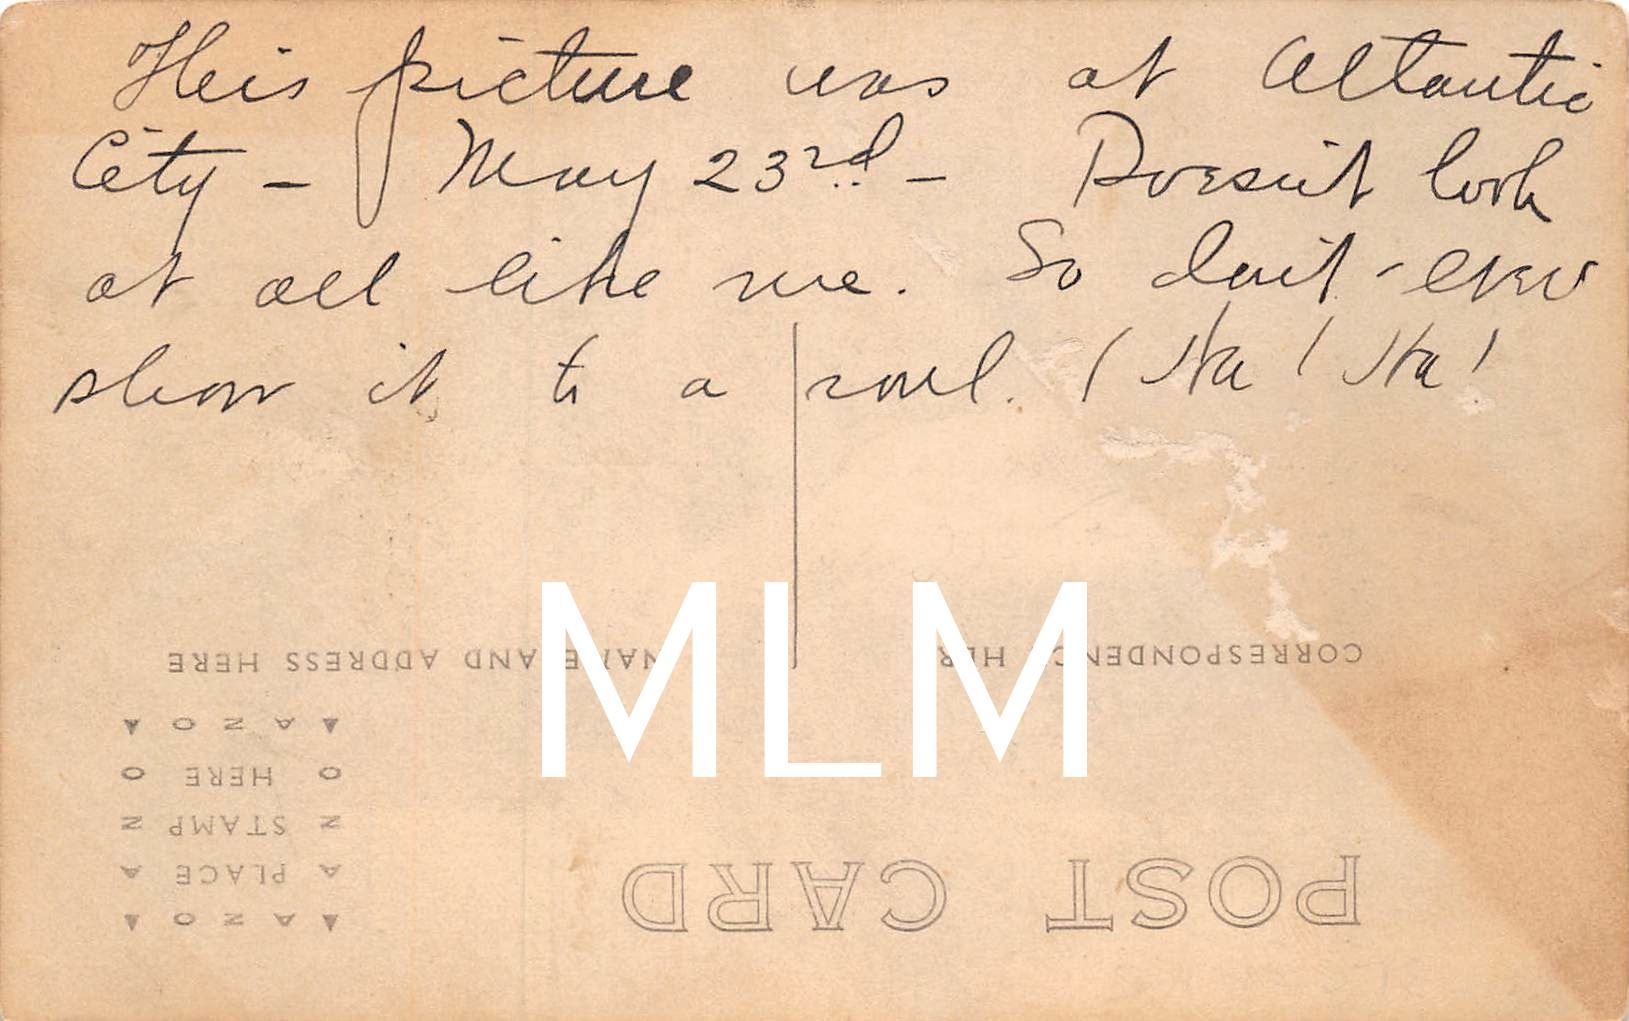 This picture was at Altantic
City - May 23rd - Doesn't look
at all like me. So don't ever
show it to a soul. ! Ha ! Ha !
MLM
NAME AND ADDRESS HERE
CORRESPONDENCE HERE
AZO
PLACE
STAMP
HERE
AZO
POST CARD